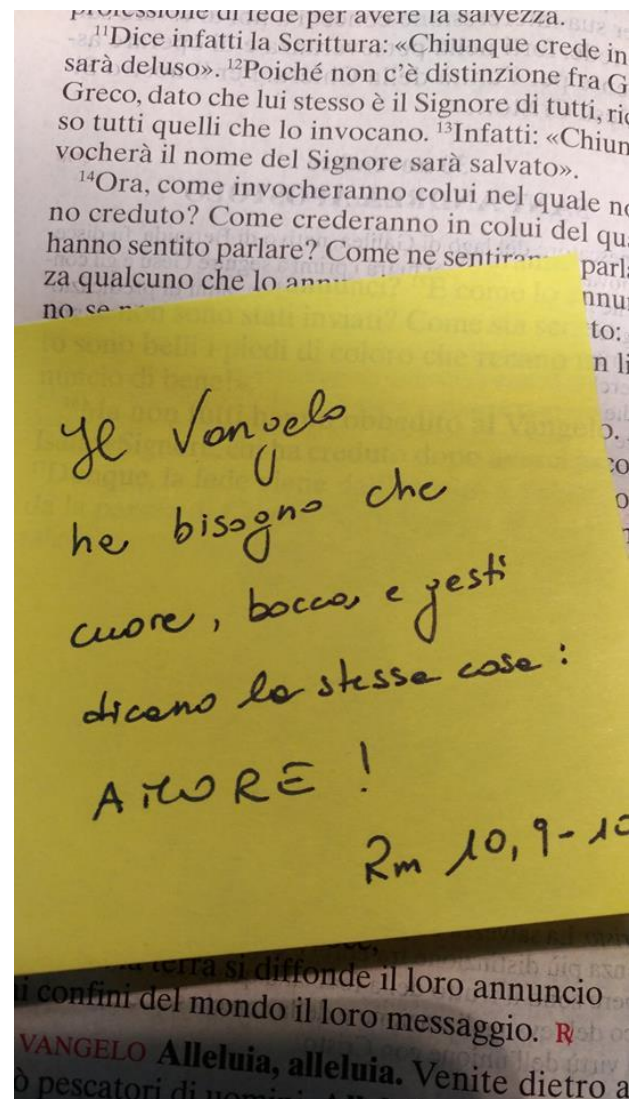 professione di fede per avere la salvezza.
¹¹Dice infatti la Scrittura: «Chiunque crede in
sarà deluso». ¹²Poiché non c'è distinzione fra G
Greco, dato che lui stesso è il Signore di tutti, ric
so tutti quelli che lo invocano. ¹³Infatti: «Chiun
vocherà il nome del Signore sarà salvato».
¹⁴Ora, come invocheranno colui nel quale no
no creduto? Come crederanno in colui del qu
hanno sentito parlare? Come ne sentiranno parla
za qualcuno che lo annunci? ¹⁵E come lo annun
no se non sono stati inviati? Come sta scritto:
sono belli i piedi di coloro che recano un li
Il Vangelo
ha bisogno che
cuore, bocca, e gesti
dicano la stessa cosa:
AMORE!
Rm 10, 9-10
terra si diffonde il loro annuncio
i confini del mondo il loro messaggio. R
VANGELO Alleluia, alleluia. Venite dietro a
ò pescatori di uomini.